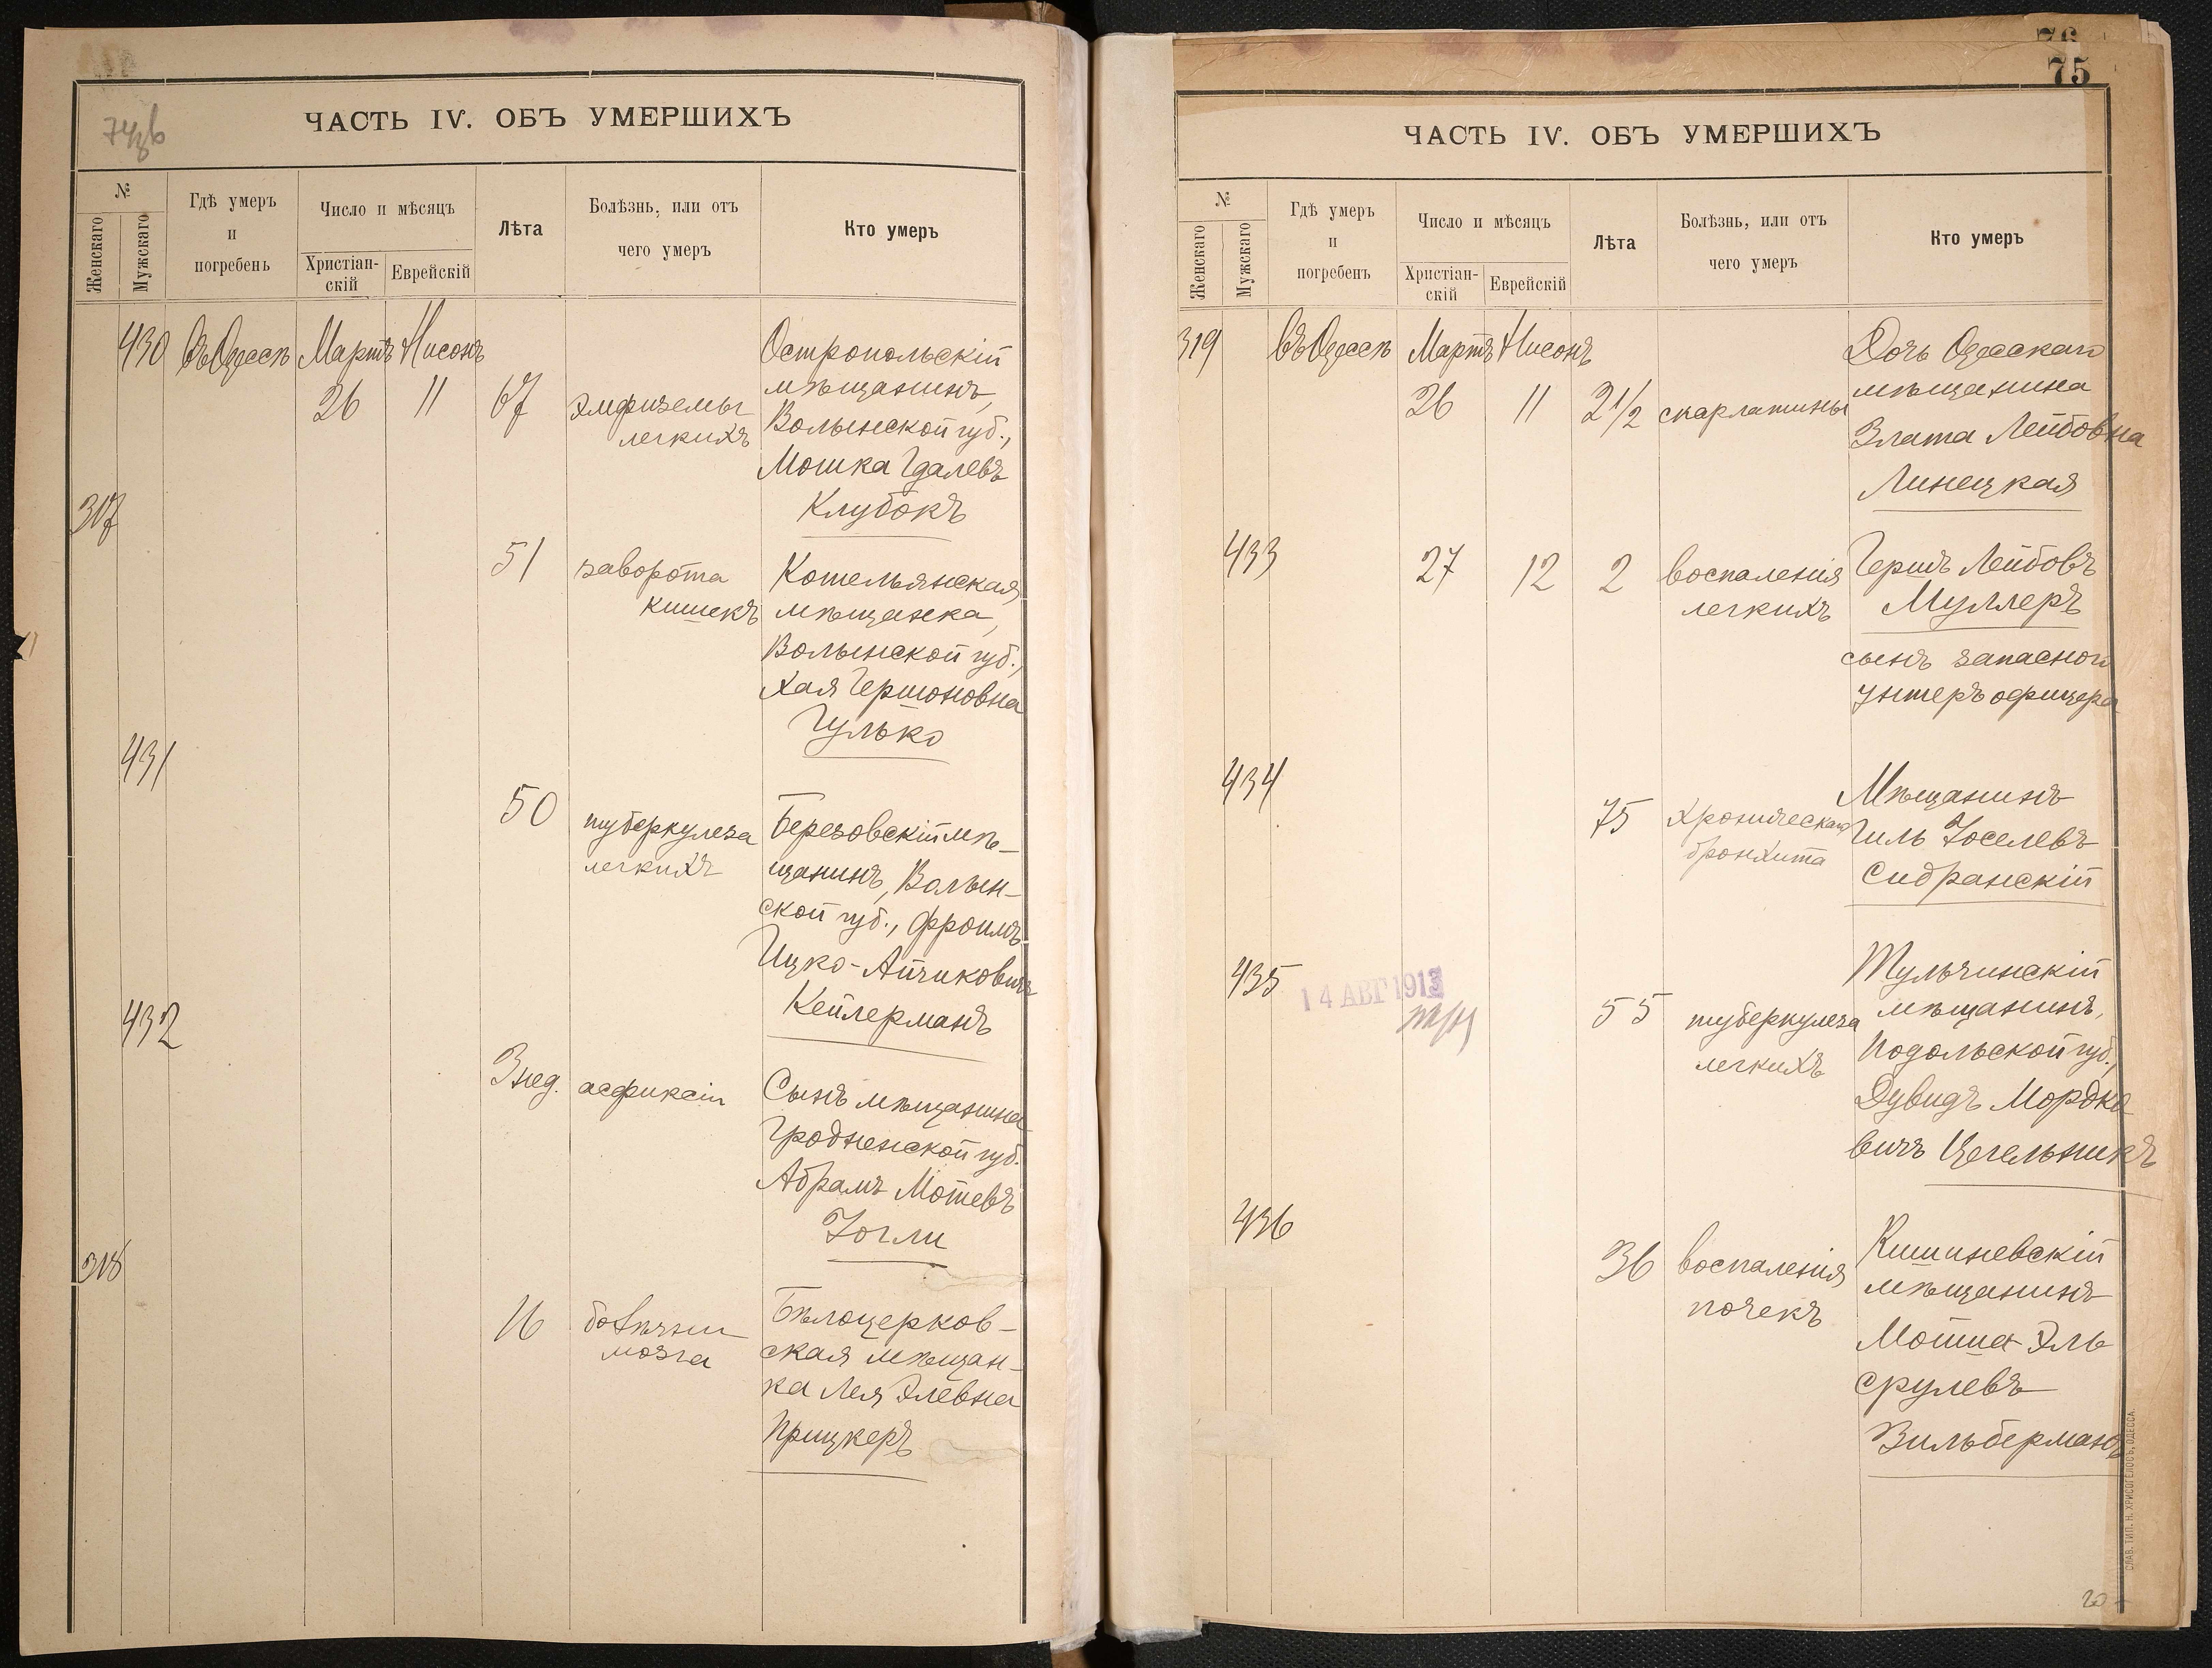 74об
ЧАСТЬ IV. ОБЪ УМЕРШИХЪ
№
Женскаго
Мужскаго
Гдѣ умеръ
и
погребенъ
Число и мѣсяцъ
Христіан-
скій
Еврейскій
Лѣта
Болѣзнь, или отъ
чего умеръ
Кто умеръ
430 въ Одессѣ Мартъ Нисонъ
26 11 67
эмфиземы
легкихъ
Остропольскій
мѣщанинъ,
Волынской губ.,
Мошка Гдалевъ
Клубокъ
317
51 заворота
кишекъ
Котельянская
мѣщанка,
Волынской губ.,
Хая Гершоновна
Гулько
431
50 туберкулеза
легкихъ
Березовскій мѣ-
щанинъ, Волын-
ской губ., Фроимъ
Ицко-Айчиковичъ
Кейлерманъ
432
3 нед. асфиксіи
Сынъ мѣщанина
Гродненской губ.
Абрамъ Мотевъ
Іогли
318
16
мозга
Бѣлоцерков-
ская мѣщан-
ка Лея Элевна
Прицкеръ
76
75
ЧАСТЬ IV. ОБЪ УМЕРШИХЪ
№
Женскаго
Мужскаго
Гдѣ умеръ
и
погребенъ
Число и мѣсяцъ
Христіан-
скій
Еврейскій
Лѣта
Болѣзнь, или отъ
чего умеръ
Кто умеръ
319 въ Одессѣ Мартъ Нисонъ
26 11 2 1/2 скарлатины
Дочь Одесскаго
мѣщанина
Злата Лейбовна
Линецкая
433 27 12 2 воспаленія
легкихъ
Гершъ Лейбовъ
Муллеръ
сынъ запасного
унтеръ офицера
434
75 хроническаго
бронхита
Мѣщанинъ
Гиль Іоселевъ
Сидранскій
435
14 АВГ 1913
55 туберкулеза
легкихъ
Тульчинскій
мѣщанинъ,
Подольской губ.,
Дувидъ Мордко
вичъ Цегельникъ
436
36 воспаленія
почекъ
Кишиневскій
мѣщанинъ
Мошка Эль
срулевъ
Зильберманъ
СЛАВ. ТИП. Н. ХРИСОГЕЛОСЪ, ОДЕССА.